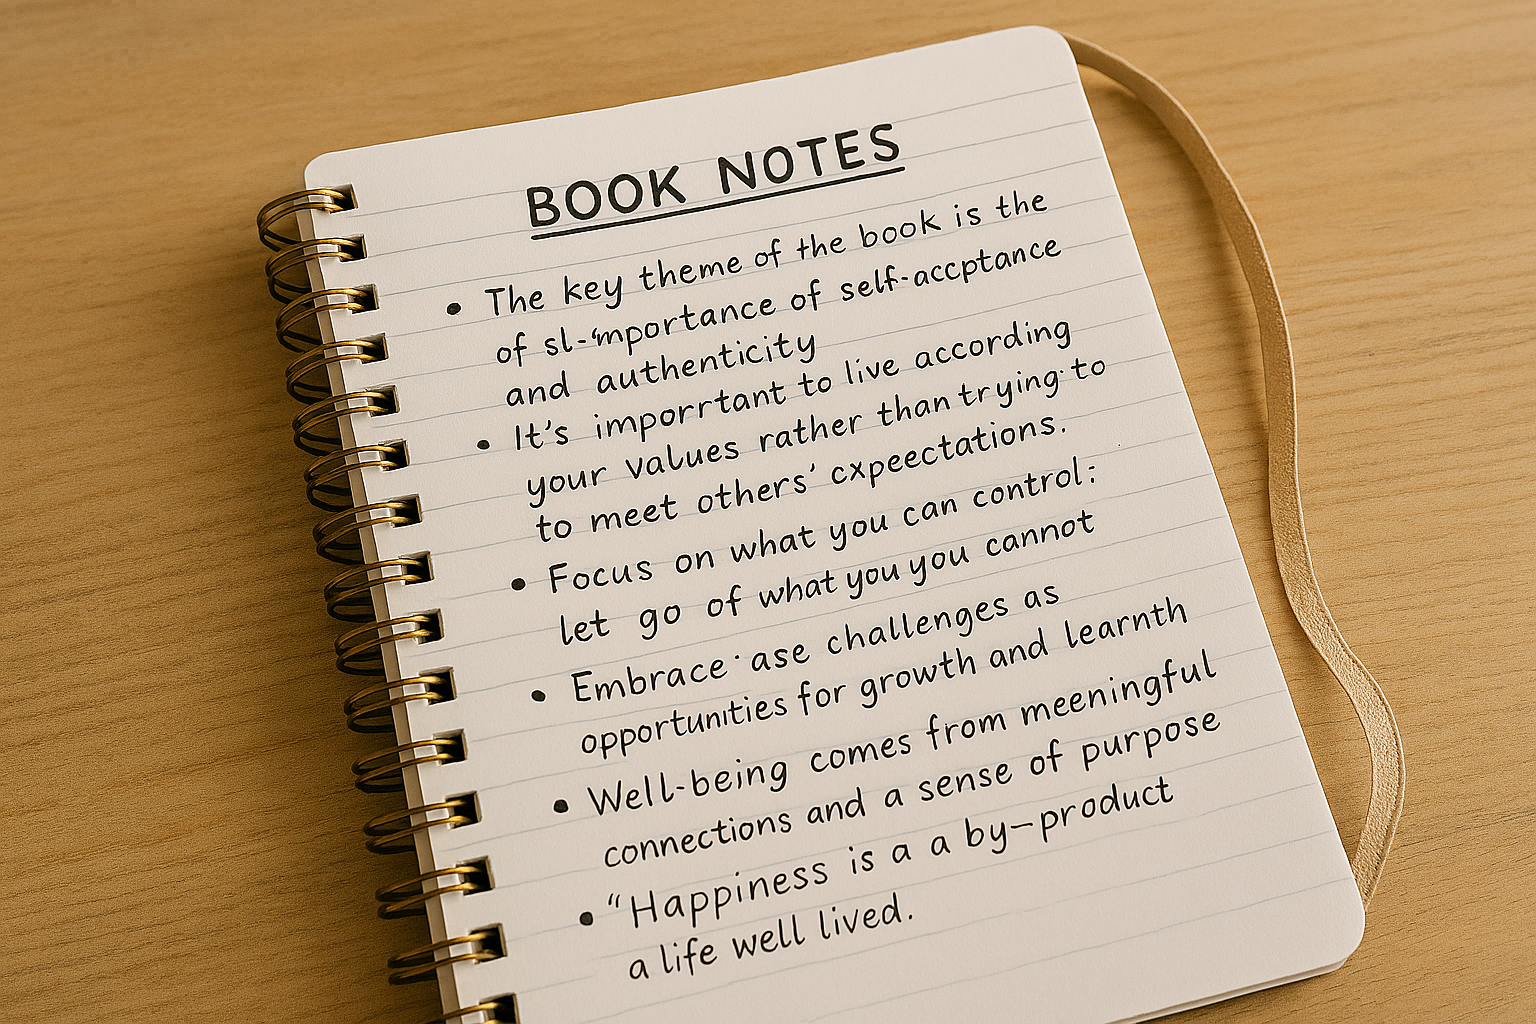 BOOK NOTES
• The key theme of the book is the
of sl-importance of self-accptance
and authenticity
• It's imporrtant to live according
your values rather than trying to
to meet others' cxpeectations.
• Focus on what you can control:
let go of what you you cannot
• Embrace · ase challenges as
opportunities for growth and learnth
• Well-being comes from meeningful
connections and a sense of purpose
• "Happiness is a a by-product
a life well lived.